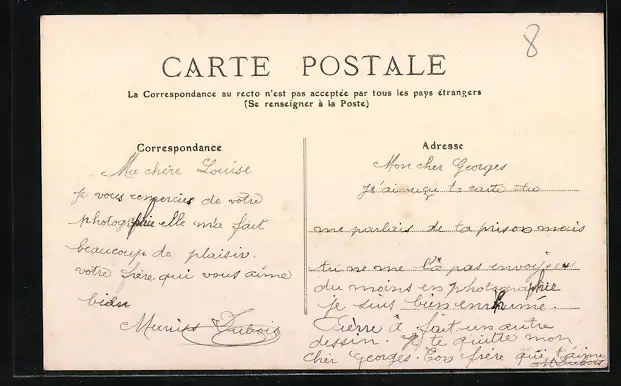 8
CARTE POSTALE
La Correspondance au recto n'est pas acceptée par tous les pays étrangers
(Se renseigner à la Poste)
Correspondance
Ma chère Louise
Je vous remercies de votre
photographie elle m'a fait
beaucoup de plaisir.
votre frère qui vous aime
bien
Dubois
Adresse
Mon cher Georges
J'ai reçu ta carte tu
me parlais de ta prison mais
tu ne me l'a pas envoyée
du moins en photographie
je suis bien enrhumé.
Pierre à fait un autre
dessin. Je te quitte mon
cher Georges. Ton frère qui t'aime
M Dubois